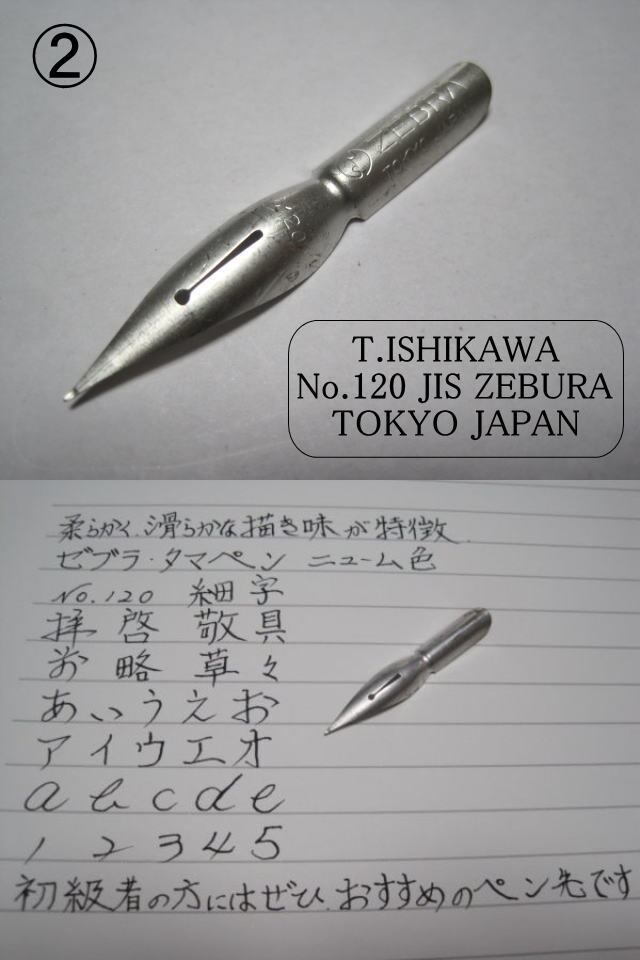 ②
ZEBRA
TOKYO JAPAN
T.ISHIKAWA
No.120 JIS ZEBURA
TOKYO JAPAN
柔らかく、滑らかな描き味が特徴
ゼブラ・タマペン ニューム色
No.120 細字
拝啓 敬具
前略 草々
あいうえお
アイウエオ
a b c d e
1 2 3 4 5
初級者の方にはぜひ、おすすめのペン先です